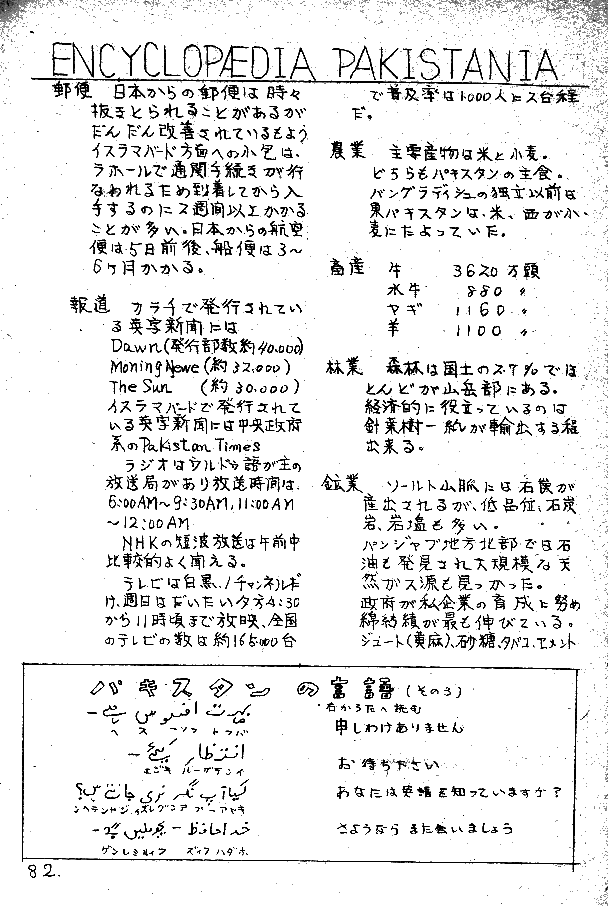 ENCYCLOPÆDIA PAKISTANIA
郵便 日本からの郵便は時々
抜きとられることがあるが
だんだん改善されているもよう
イスラマバード方面への小包は、
ラホールで通関手続きが行
なわれるため到着してから入
手するのに2週間以上かかる
ことが多い。日本からの航空
便は5日前後、船便は3〜
6ヶ月かかる。
報道 カラチで発行されてい
る英字新聞には
Dawn(発行部数約40,000)
Moning Newe(約32,000)
The Sun (約30,000)
イスラマバードで発行されて
いる英字新聞には中央政府
系のPakistan Times
ラジオはウルドゥ語が主の
放送局があり放送時間は、
6:00AM〜9:30AM, 11:00AM
〜12:00AM
NHKの短波放送は午前中
比較的よく聞える。
テレビは白黒、1チャンネルだ
け、週日はだいたい夕方4:30
から11時頃まで放映、全国
のテレビの数は約165,000台
で普及率は1000人に2台程
だ。
農業 主要産物は米と小麦。
どちらもパキスタンの主食。
バングラディシュの独立以前は
東パキスタンは、米、西が小
麦にたよっていた。
畜産 牛 3620万頭
水牛 880 〃
ヤギ 1160 〃
羊 1100 〃
林業 森林は国土の2.7%でほ
とんどが山岳部にある。
経済的に役立っているのは
針葉樹一
が輸出する程
出来る。
鉱業 ソールト山脈には石炭が
産出されるが、低品位、石炭
岩、岩塩も多い。
パンジャブ地方北部では石
油も発見され大規模な天
然ガス源も見つかった。
政府が私企業の育成に努め
綿紡績が最も伸びている。
ジュート(黄麻)、砂糖、タバコ、セメント
パキスタンの言語(その3)
右からたへ読む
بہت افسوس ہے –
申しわけありません
انتظار کیجئے –
お待ち下さい
کیا آپ انگریزی جانتے ہیں؟
あなたは英語を知っていますか?
خدا حافظ – پھر ملیں گے –
さようなら また会いましょう
82.